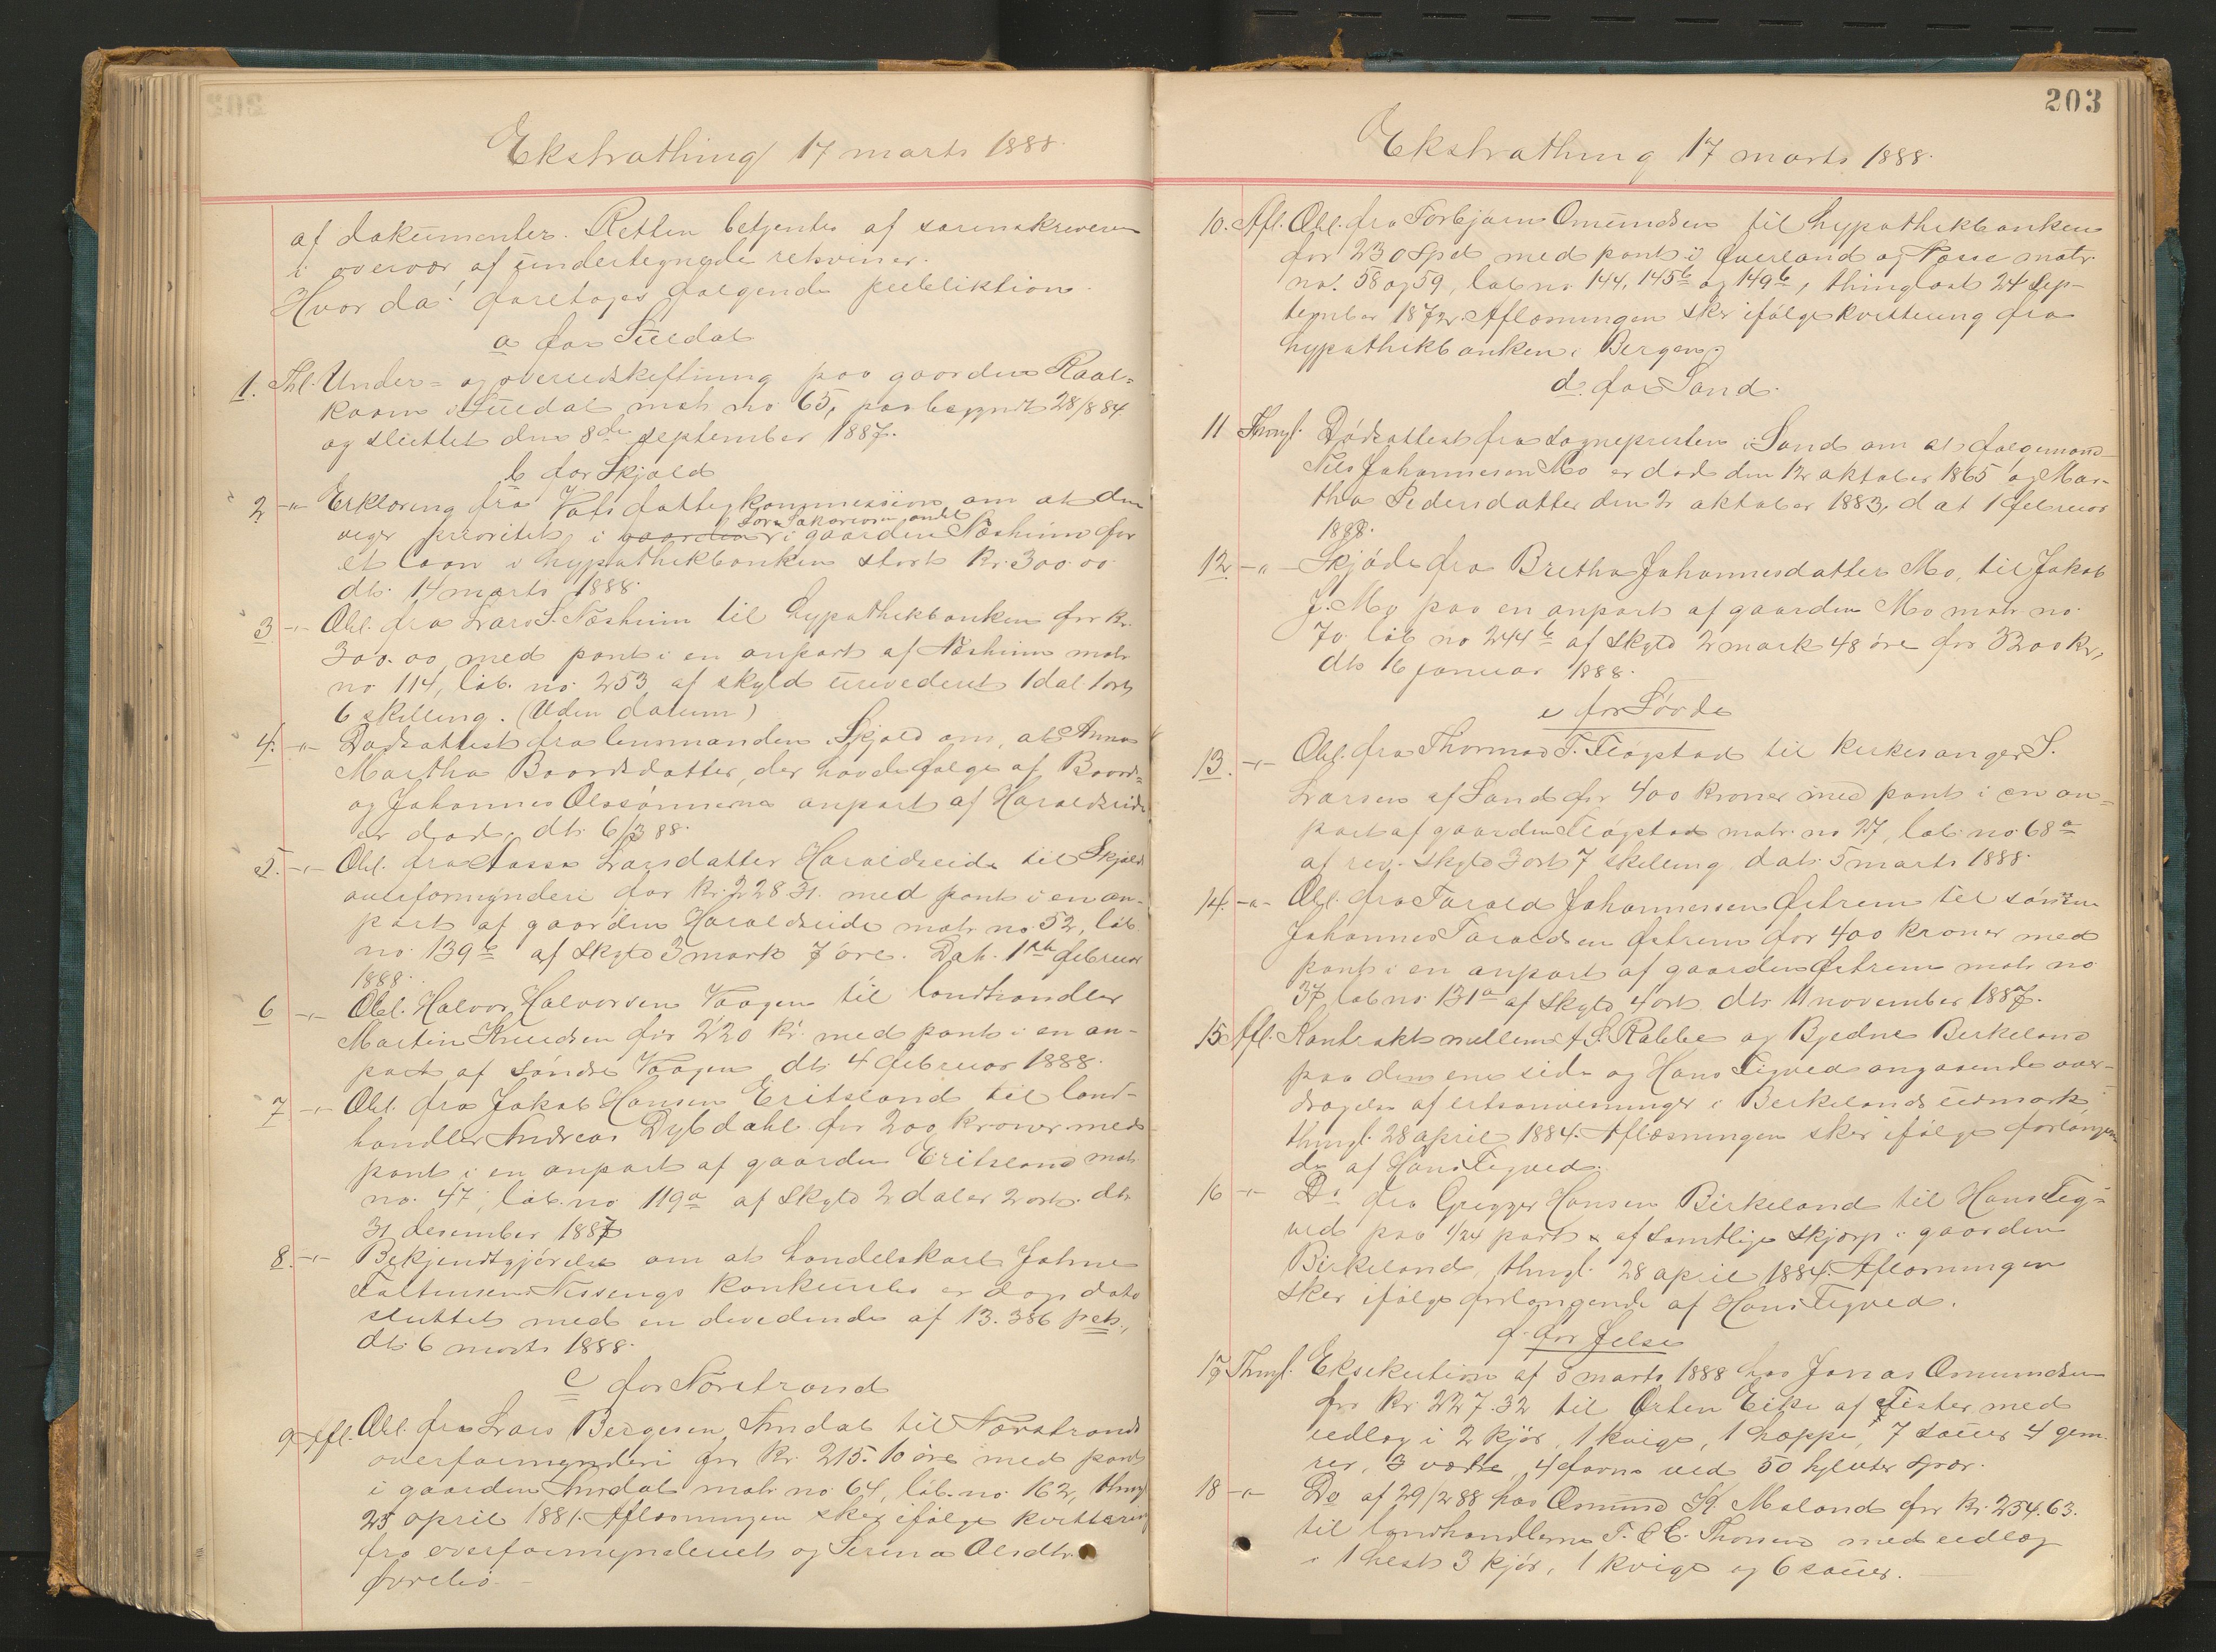 Ekstrathing 17 marts 1888.
af dokumenter. Retten betjentes af sorenskriveren
i overvær af undertegnede retsvitner.
Hvor da! foretoges følgende publiktion.
a for Suldal
1. Thl. Under- og overudskiftning paa gaarden Raal-
kaam i Suldal mat no 65, paabegyndt 28/8 84
og sluttet den 8de september 1887.
b for Skjold
2 -"- Erklæring fra Vats fattigkommission om at den
viger prioritet i gaarden Lars Sakarisson andel i gaarden Næsheim for
et laan i hypothekbanken stort kr. 300.00
dt. 14 marts 1888
3 -"- Obl. fra Lars S. Næsheim til hypothekbanken for kr.
300.00 med pant i en anpart af Næsheim matr
no 114, løb. no. 253 af skyld urevideret 1 dal. 1 ort
6 skilling. (Uden datum)
4. -"- Dødsattest fra lensmanden i Skjold om, at Anna
Martha Baardsdatter, der havde følge af Baard-
og Johannes Olssønnerne anpart af Haraldseide
er død. dt. 6/3 88.
5. -"- Obl. fra Aasa Larsdatter Haraldseide til Skjold
overformynderi for kr. 228 31. med pant i en an-
part af gaarden Haraldseide matr no. 52, løb.
no. 139 b af skyld 3 mark 7 øre. Dat. 1ste februar
1888.
6 -"- Obl. Halvor Halvorsen Vaagen til landhandler
Martin Knudsen for 220 kr. med pant i en an-
part af søndre Vaagen dt. 4 februar 1888.
7 -"- Obl. fra Jakob Hansen Eritsland til land-
handler Andreas Dybdahl for 200 kroner med
pant i en anpart af gaarden Eritsland matr
no. 47, løb. no 119 a af skyld 2 daler 2 ort. dt.
31 desember 1887
8. -"- Bekjendtgjørelse om at handelskarl Johne
konkursbo er dags dato
sluttet med en devedende af 13.386 pct.,
dt. 6 marts 1888.
c for Nærstrand
9 Afl. Obl. fra Lars Bergesen Amdal til Nærstrands
overformynderi for kr. 215. 10 øre med pant
i gaarden Amdal matr no 64, løb. no. 162, thngl
25 april 1881. Aflæsningen sker ifølge kvittering
fra overformynderiet og Serina Olsdtr.
203
Ekstrathing 17 marts 1888.
10. Afl. Obl. fra Torbjørn Omundsen til hypothekbanken
for 230 Spd med pant i Qverland og Næsse matr.
no. 58 og 59, løb no 144, 145 b og 149 b, thinglæst 24 sep-
tember 1872. Aflæsningen sker ifølge kvittering fra
hypothekbanken i Bergen.
d. for Sand.
11 Thngl. Dødsattest fra sognepresten i Sand om at følgemand
Nils Johannesen Mo er død den 12 oktober 1865 og Mar-
tha Pedersdatter den 2 oktober 1883, dat 1 februar
1888.
12. -"- Skjøde fra Bretha Johannesdatter Mo, til Jakob
J. Mo paa en anpart af gaarden Mo matr no.
70. løb no 244 b af skyld 2 mark 48 øre for 3200 kr,
dt. 16 januar 1888.
e for Søvde
13. -"- Obl. fra Thomas T. Fløgstad til kirkesanger S.
Larsen af Sand for 400 kroner med pant i en an-
part af gaarden Fløgstad matr. no 27, løb. no. 68 a
af rev. skyld 3 ort 7 skilling dat. 5 marts 1888.
14. -"- Obl. fra Tarald Johannessen Østrem til sønnen
Johannes Taraldsen Østrem for 400 kroner med
pant i en anpart af gaarden Østrem matr no
37, løb no. 131 a af skyld 4 ort dt. 11 november 1887.
15 Afl. Kontrakt mellem A. S. Rabbe og Bjedne Berkeland
paa den ene side og Hans Tigved angaaende over-
dragelse af ertsanvisninger i Berkelands udmark
thngl. 28 april 1884. Aflæsningen sker ifølge forlangen-
de af Hans Tigved.
16 -"- Do fra Gregger Hansen Birkeland til Hans Tig-
ved paa 1/24 part af samtlige skjærp i gaarden
Birkeland, thngl. 28 april 1884. Aflæsningen
sker ifølge forlangende af Hans Tigved.
f. for Jelse
17 Thngl. Eksekution af 5 marts 1888 hos Jonas Omundsen
for kr. 227.32 til Orten Eike af Fister med
udlæg i 2 kjør, 1 kvige, 1 hoppe, 7 sauer 4 gem-
rer, 3 4 favne ved 50 hjulter
18 -"- Do af 29/2 88 hos Omund K. Maland for kr. 254.63.
til landhandlerne T. & C. Thorsen med udlæg
i 1 hest 3 kjør, 1 kvige og 6 sauer.